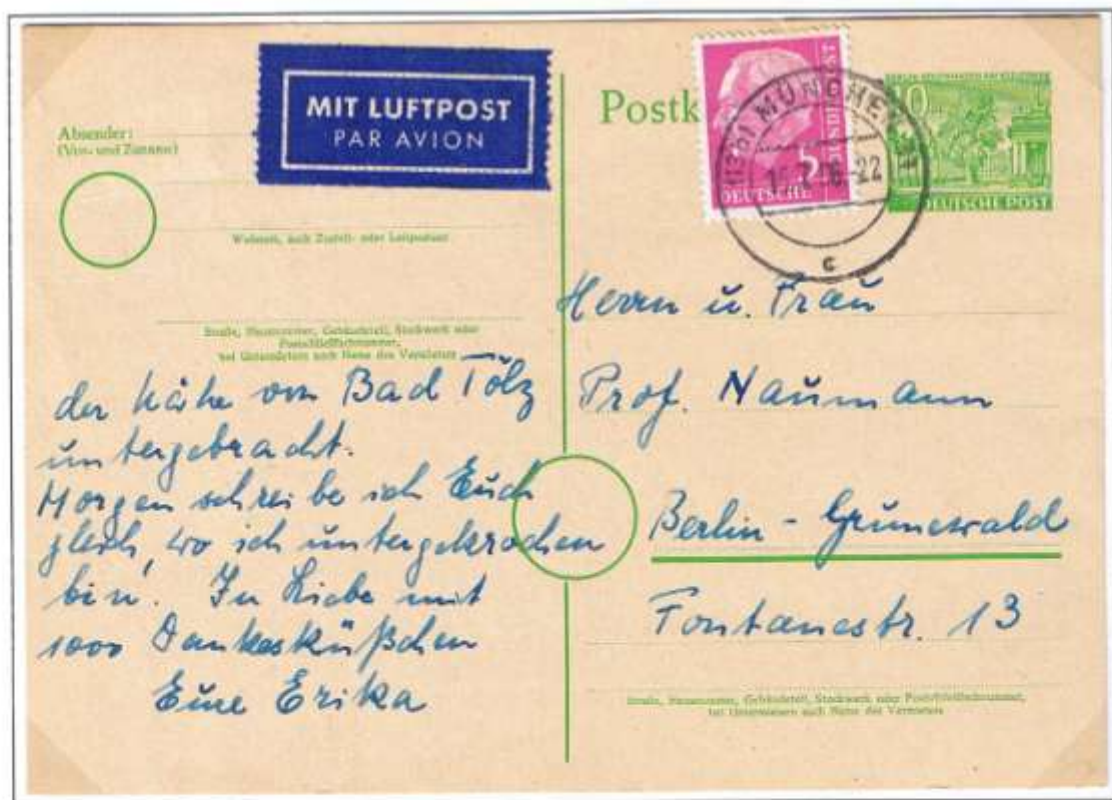 MIT LUFTPOST
PAR AVION
Absender:
(Vor- und Zuname)
Wohnort, auch Zustell- oder Leitpostamt
Straße, Hausnummer, Gebäudeteil, Stockwerk oder
Postschließfachnummer,
bei Untermietern auch Name des Vermieters
der Nähe von Bad Tölz
untergebracht.
Morgen schreibe ich Euch
gleich, wo ich untergekrochen
bin. In Liebe mit
1000 Dankesküßchen
Eure Erika
Postk
DEUTSCHE
BUNDESPOST
5
MÜNCHEN
22
c
10
DEUTSCHE POST
Herrn u. Frau
Prof. Naumann
Berlin - Grunewald
Fontanestr. 13
Straße, Hausnummer, Gebäudeteil, Stockwerk oder Postschließfachnummer,
bei Untermietern auch Name des Vermieters